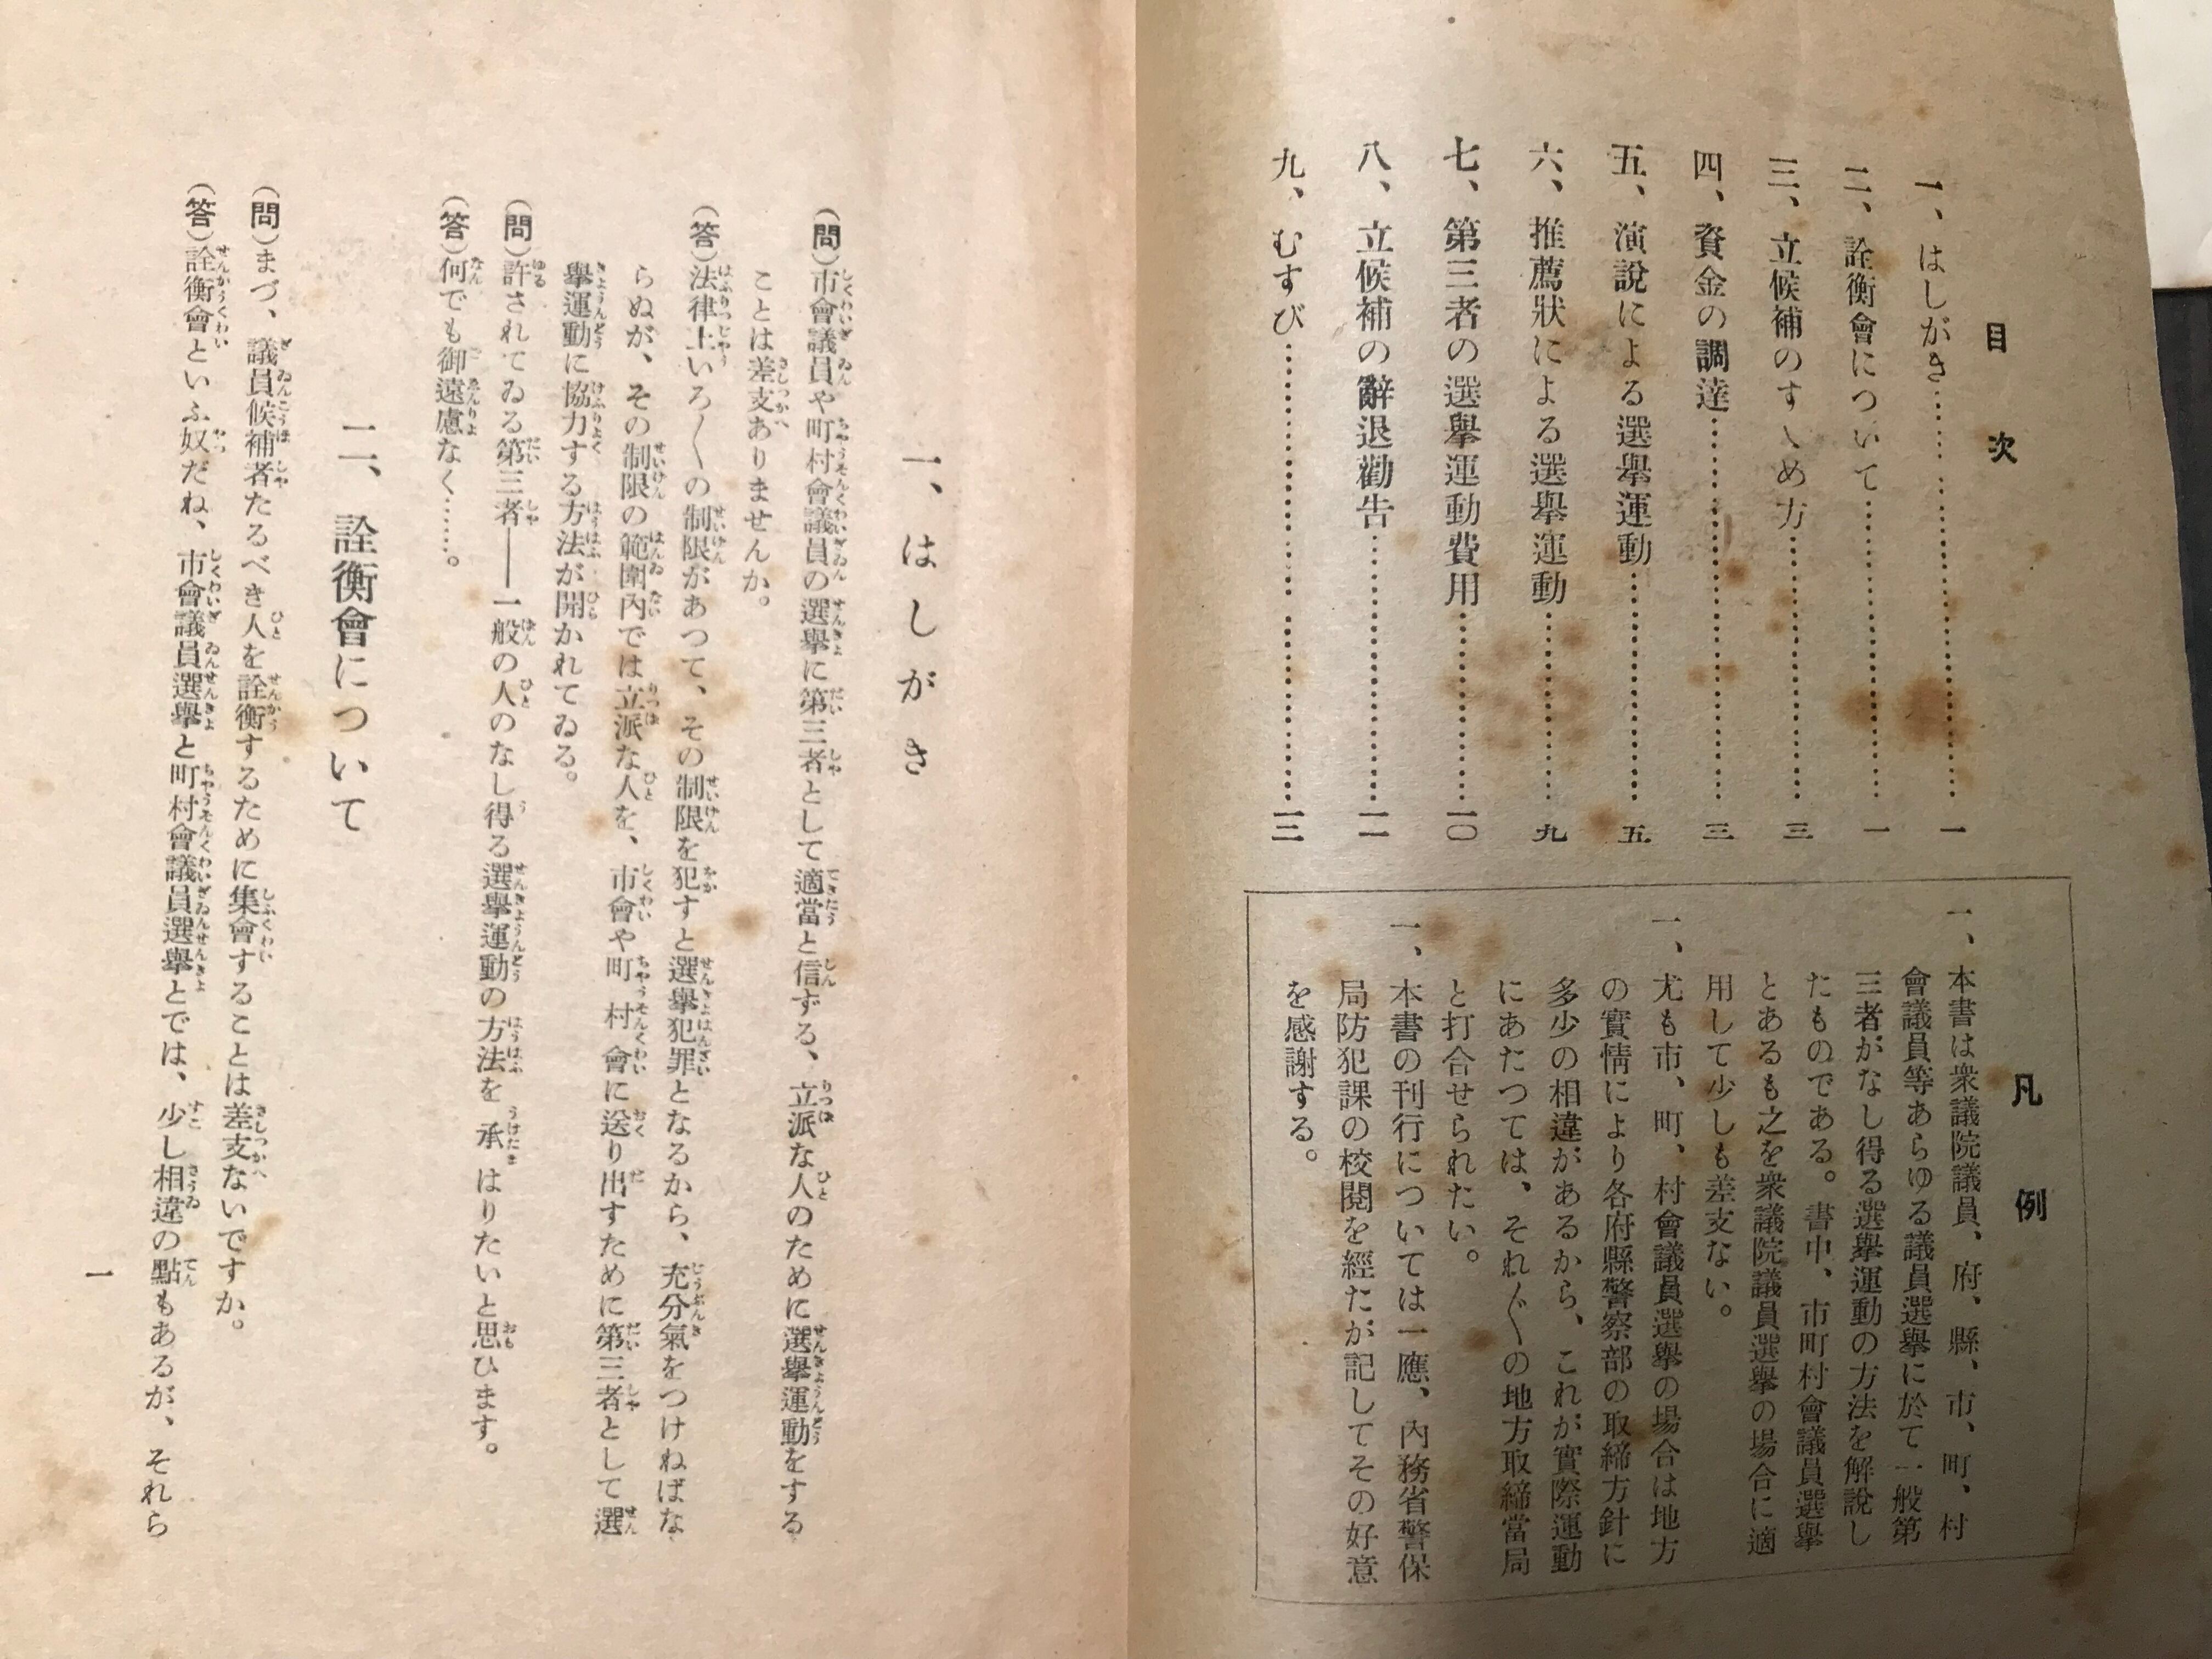 目次
一、はしがき……………………一
二、詮衡會について……………………一
三、立候補のすゝめ方……………………三
四、資金の調達……………………三
五、演說による選擧運動……………………五
六、推薦狀による選擧運動……………………九
七、第三者の選擧運動費用……………………一〇
八、立候補の辭退勸告……………………一一
九、むすび……………………一三
凡例
一、本書は衆議院議員、府、縣、市、町、村
會議員等あらゆる議員選擧に於て一般第
三者がなし得る選擧運動の方法を解說し
たものである。書中、市町村會議員選擧
とあるも之を衆議院議員選擧の場合に適
用して少しも差支ない。
一、尤も市、町、村會議員選擧の場合は地方
の實情により各府縣警察部の取締方針に
多少の相違があるから、これが實際運動
にあたつては、それ〴〵の地方取締當局
と打合せられたい。
一、本書の刊行については一應、內務省警保
局防犯課の校閱を經たが記してその好意
を感謝する。
一、はしがき
(問)市會議員や町村會議員の選擧に第三者として適當と信ずる、立派な人のために選擧運動をする
ことは差支ありませんか。
(答)法律上いろ〱の制限があつて、その制限を犯すと選擧犯罪となるから、充分氣をつけねばな
らぬが、その制限の範圍內では立派な人を、市會や町村會に送り出すために第三者として選
擧運動に協力する方法が開かれてゐる。
(問)許されてゐる第三者――一般の人のなし得る選擧運動の方法を承はりたいと思ひます。
(答)何でも御遠慮なく……。
二、詮衡會について
(問)まづ、議員候補者たるべき人を詮衡するために集會することは差支ないですか。
(答)詮衡會といふ奴だね、市會議員選擧と町村會議員選擧とでは、少し相違の點もあるが、それら
一